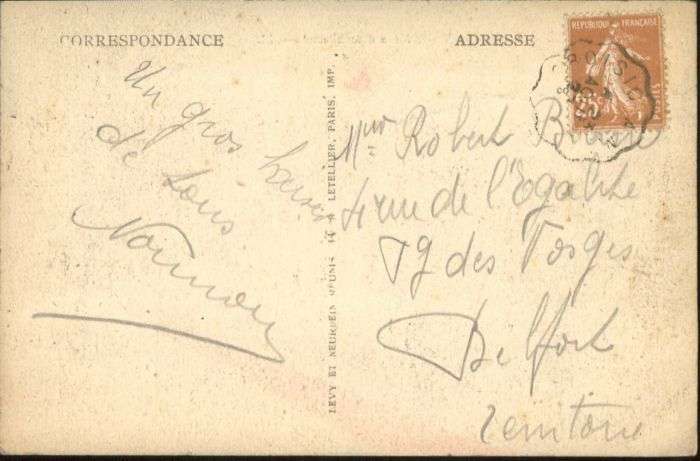 CORRESPONDANCE
Un gros baiser
de tous
LEVY ET NEURDEIN REUNIS LETELLIER, PARIS, IMP.
ADRESSE
REPUBLIQUE FRANÇAISE
25c
Mr Robert
4 rue de l'Egalité
des Vosges
Belfort
Territoire